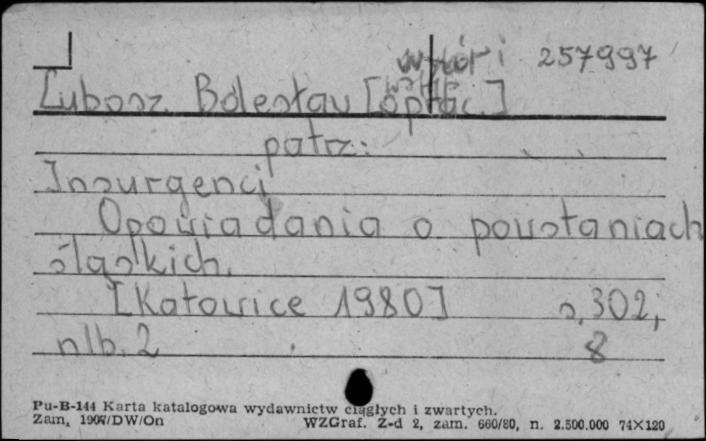 wybór i 257997
Lubosz Bolesław [oprac.]
patrz:
Insurgenci
Opowiadania o powstaniach
śląskich.
[Katowice 1980] s. 302,
nlb. 2 8
Pu-B-144 Karta katalogowa wydawnictw ciągłych i zwartych.
Zam. 1907/DW/On WZGraf. Z-d 2, zam. 660/80, n. 2.500.000 74×120